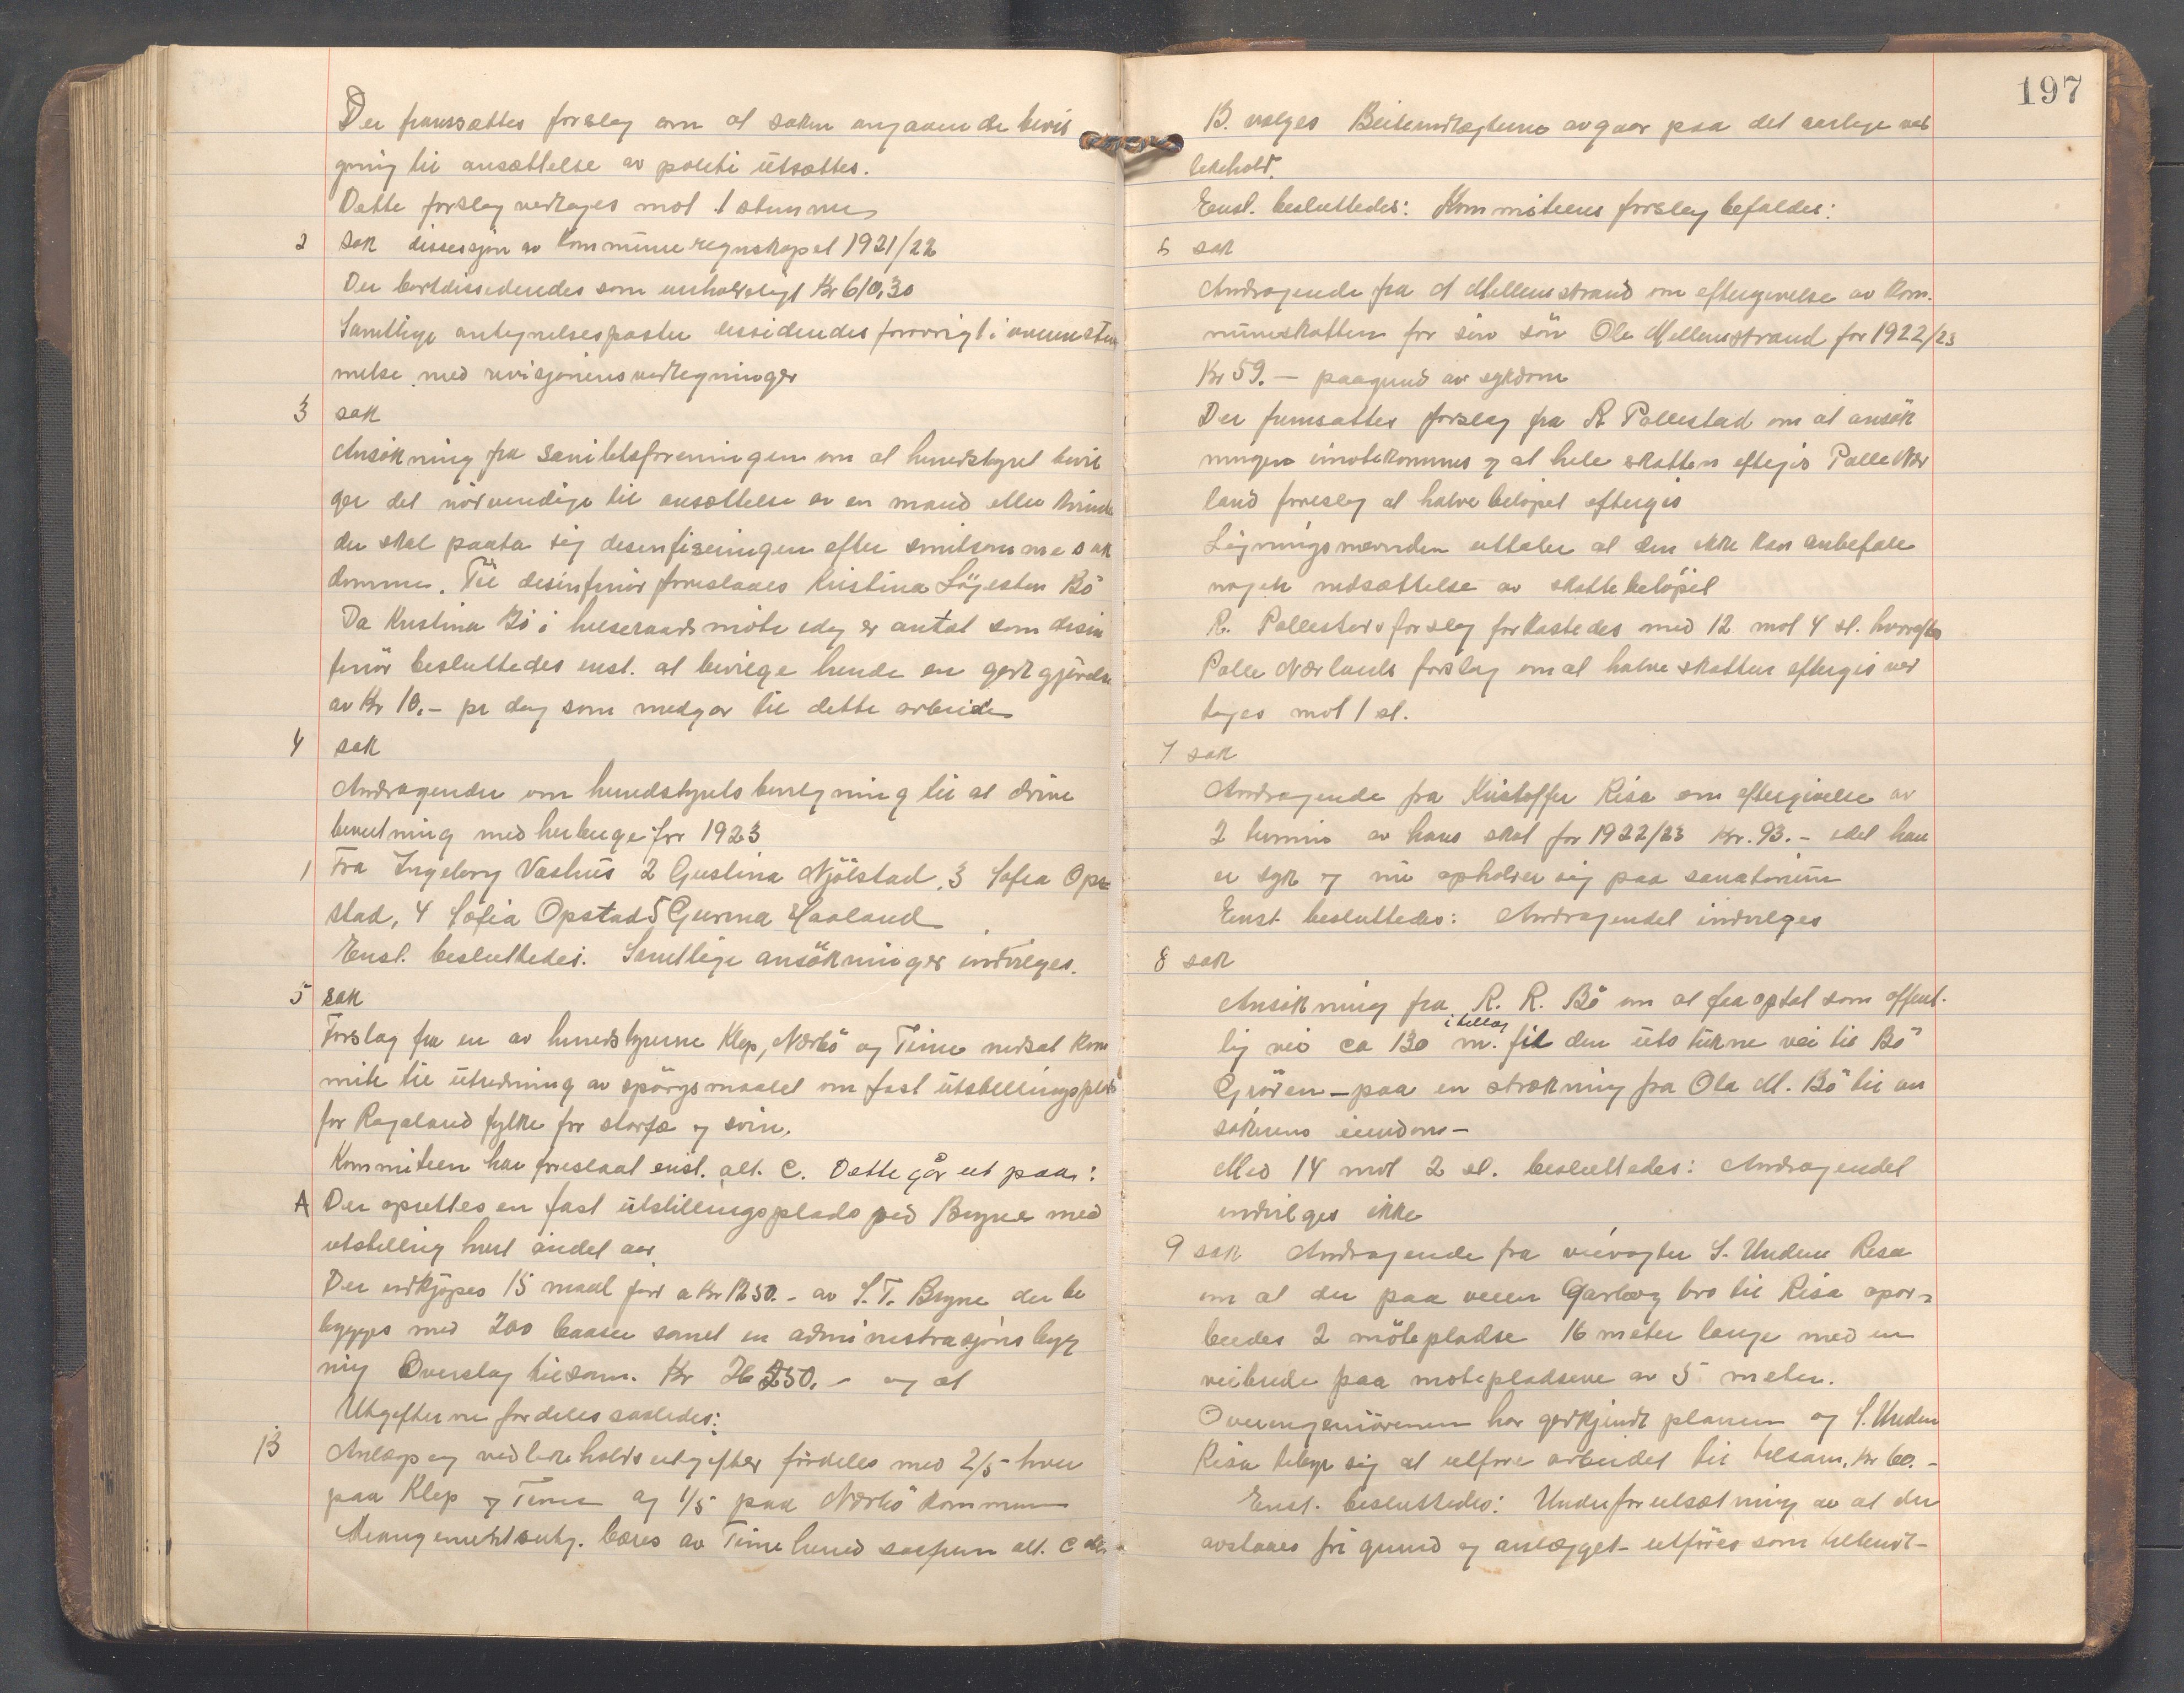 Der fremsættes forslag om at saken angaaende bevil
gning til ansættelse av politi utsættes.
Dette forslag vedtages mot 1 stemme
2 sak dissesjon av kommuneregnskapet 1921/22
Der bortdissedendes som uerholdeligt Kr 610,30
Samtlige antegnelsesposter dessiderdes forovrigt i overenstem
melse med revisjonens vedtegninger
3 sak
Ansøkning fra Sanitetsforeningen om at heredstyret bevil
ger det nødvendige til ansættelse av en mand eller kvinde
der skal paata sig desenfiseringen efter smitsomme syk
domme. Til desinfinør foreslaaes Kristina Løgesten Bö
Da Kristina Bö i helseraadsmöte idag er antat som desin
finör besluttedes enst. at bevilge hende en godtgjörelse
av Kr 10.- pr dag som medgar til dette arbeide
4 sak
Andragender om heredstyrets bevilgning til at drive
bevertning med herberge for 1923
1 Fra Ingeborg Vashus 2 Gustina Njölstad, 3 Sofia Op=
stad, 4 Sofia Opstad 5 Gurina Haaland
Enst. besluttedes. Samtlige ansökninger indvilges.
5 sak
Forslag fra en av heredstyrerne Klep, Nærbö og Time nedsat kom
mite til utredning av spörgsmaalet om fast utstillingsplads
for Rogaland fylke for storfæ og svin.
Kommiteen har foreslaat enst. alt. C. Dette går ut paa:
A Der oprettes en fast utstillingsplads ved Bryne med
utstilling hvert andet aar.
Der indkjöpes 15 maal jord a Kr 1250.- av S. T. Bryne der be
bygges med 200 baaser samt en administrasjons byg
ning Overslag tilsam. Kr 26250.- og at
Utgifterne fordeles saaledes:
B Anlægs og vedlikeholds utgifter fordeles med 2/5 hver
paa Klep og Time og 1/5 paa Nærbö kommune
Arangementsutg. bæres av Time hered saafrem alt. C eller
197
B. vælges Beiteindtægterne avgaar paa det aarlige ved
likehold.
Enst. besluttedes: Kommiteens forslag befaldes:
6 sak
Andragende fra A Mellemstrand om eftergivelse av kom.
muneskatten for sin sön Ole Mellemstrand for 1922/23
Kr 59.- paagrund av sykdom
Der fremsattes forslag fra R Pollestad om at ansök
ningen imötekommes og at hele skatten eftergis Palle Nær
land foreslog at halve belöpet eftergis
Ligningsnævnden uttaler at den ikke kan anbefale
nogen nedsættelse av skattebelöpet
R. Pollestads forslag forkastedes med 12 mot 4 st. hvorefter
Palle Nærlands forslag om at halve skatten eftergis ved
tages mot 1 st.
7 sak
Andragende fra Kristoffer Risa om eftergivelse av
2 termin av hans skat for 1922/23 Kr. 93.- idet han
er syk og nu opholder sig paa sanatorium
Enst. besluttedes: Andragendet indvilges
8 sak
Ansökning fra R. R. Bö om at faa optat som offent-
lig vei ca 130 m. i tillæg til den utstukne vei til Bö
Gröden - paa en strækning fra Ola M. Bö til an
søkerens eiendom -
Med 14 mot 2 st. besluttedes: Andragendet
indvilges ikke
9 sak Andragende fra veivogter S. Undem Risa
om at der paa veien Garborg bro til Risa opar=
beides 2 möteplasse 16 meter lange med en
veibrede paa motepladsene av 5 meter.
Overingeniörenen har godkjendt planen og S. Undem
Risa tilbyr sig at utføre arbeidet til tilsam. Kr 60.-
Enst. besluttedes: Under forutsætning av at der
avstaaes fri grund og anlægget utföres som tilbudt-